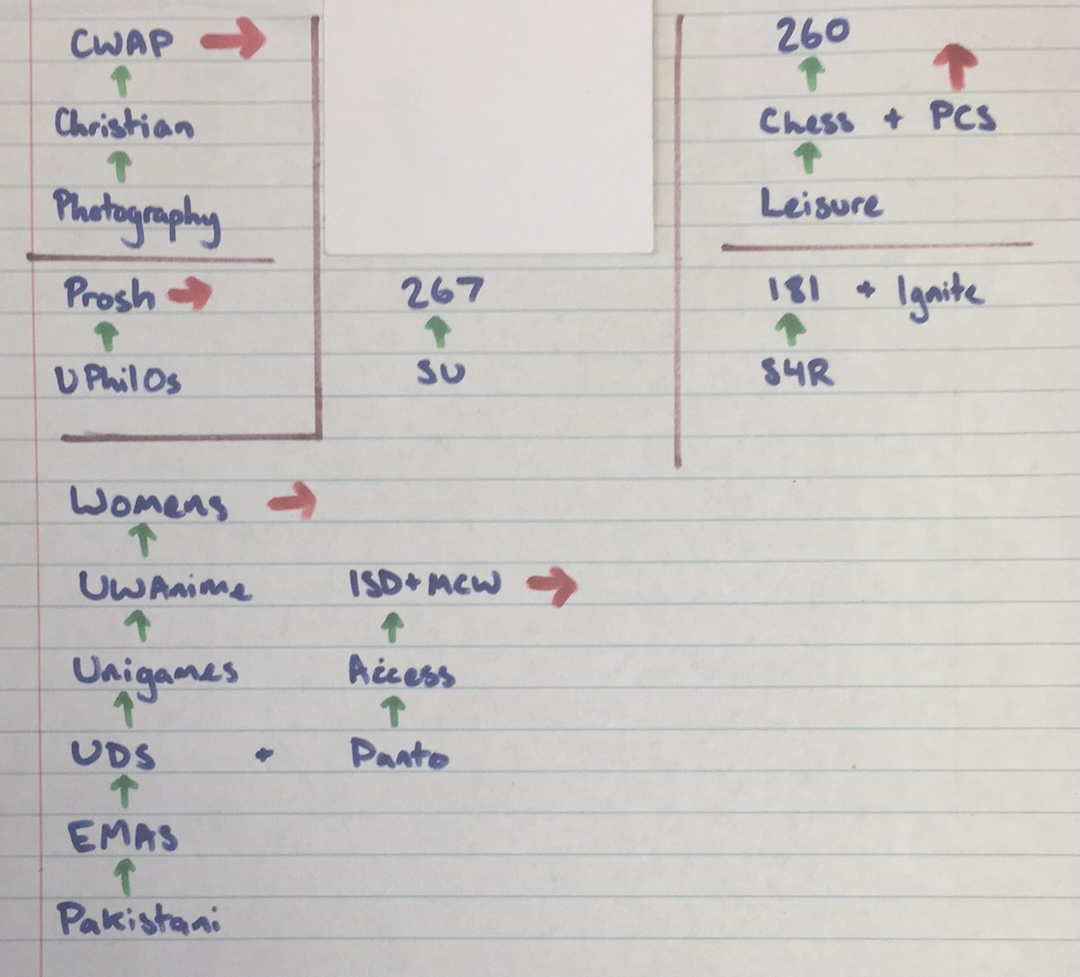 CWAP →
↑
Christian
↑
Photography
Prosh →
↑
UPhilOs
267
↑
SU
260
↑ ↑
Chess + PCS
↑
Leisure
181 + Ignite
↑
S4R
Womens →
↑
UWAnime ISD+MCW →
↑ ↑
Unigames Access
↑ ↑
UDS + Panto
↑
EMAS
↑
Pakistani